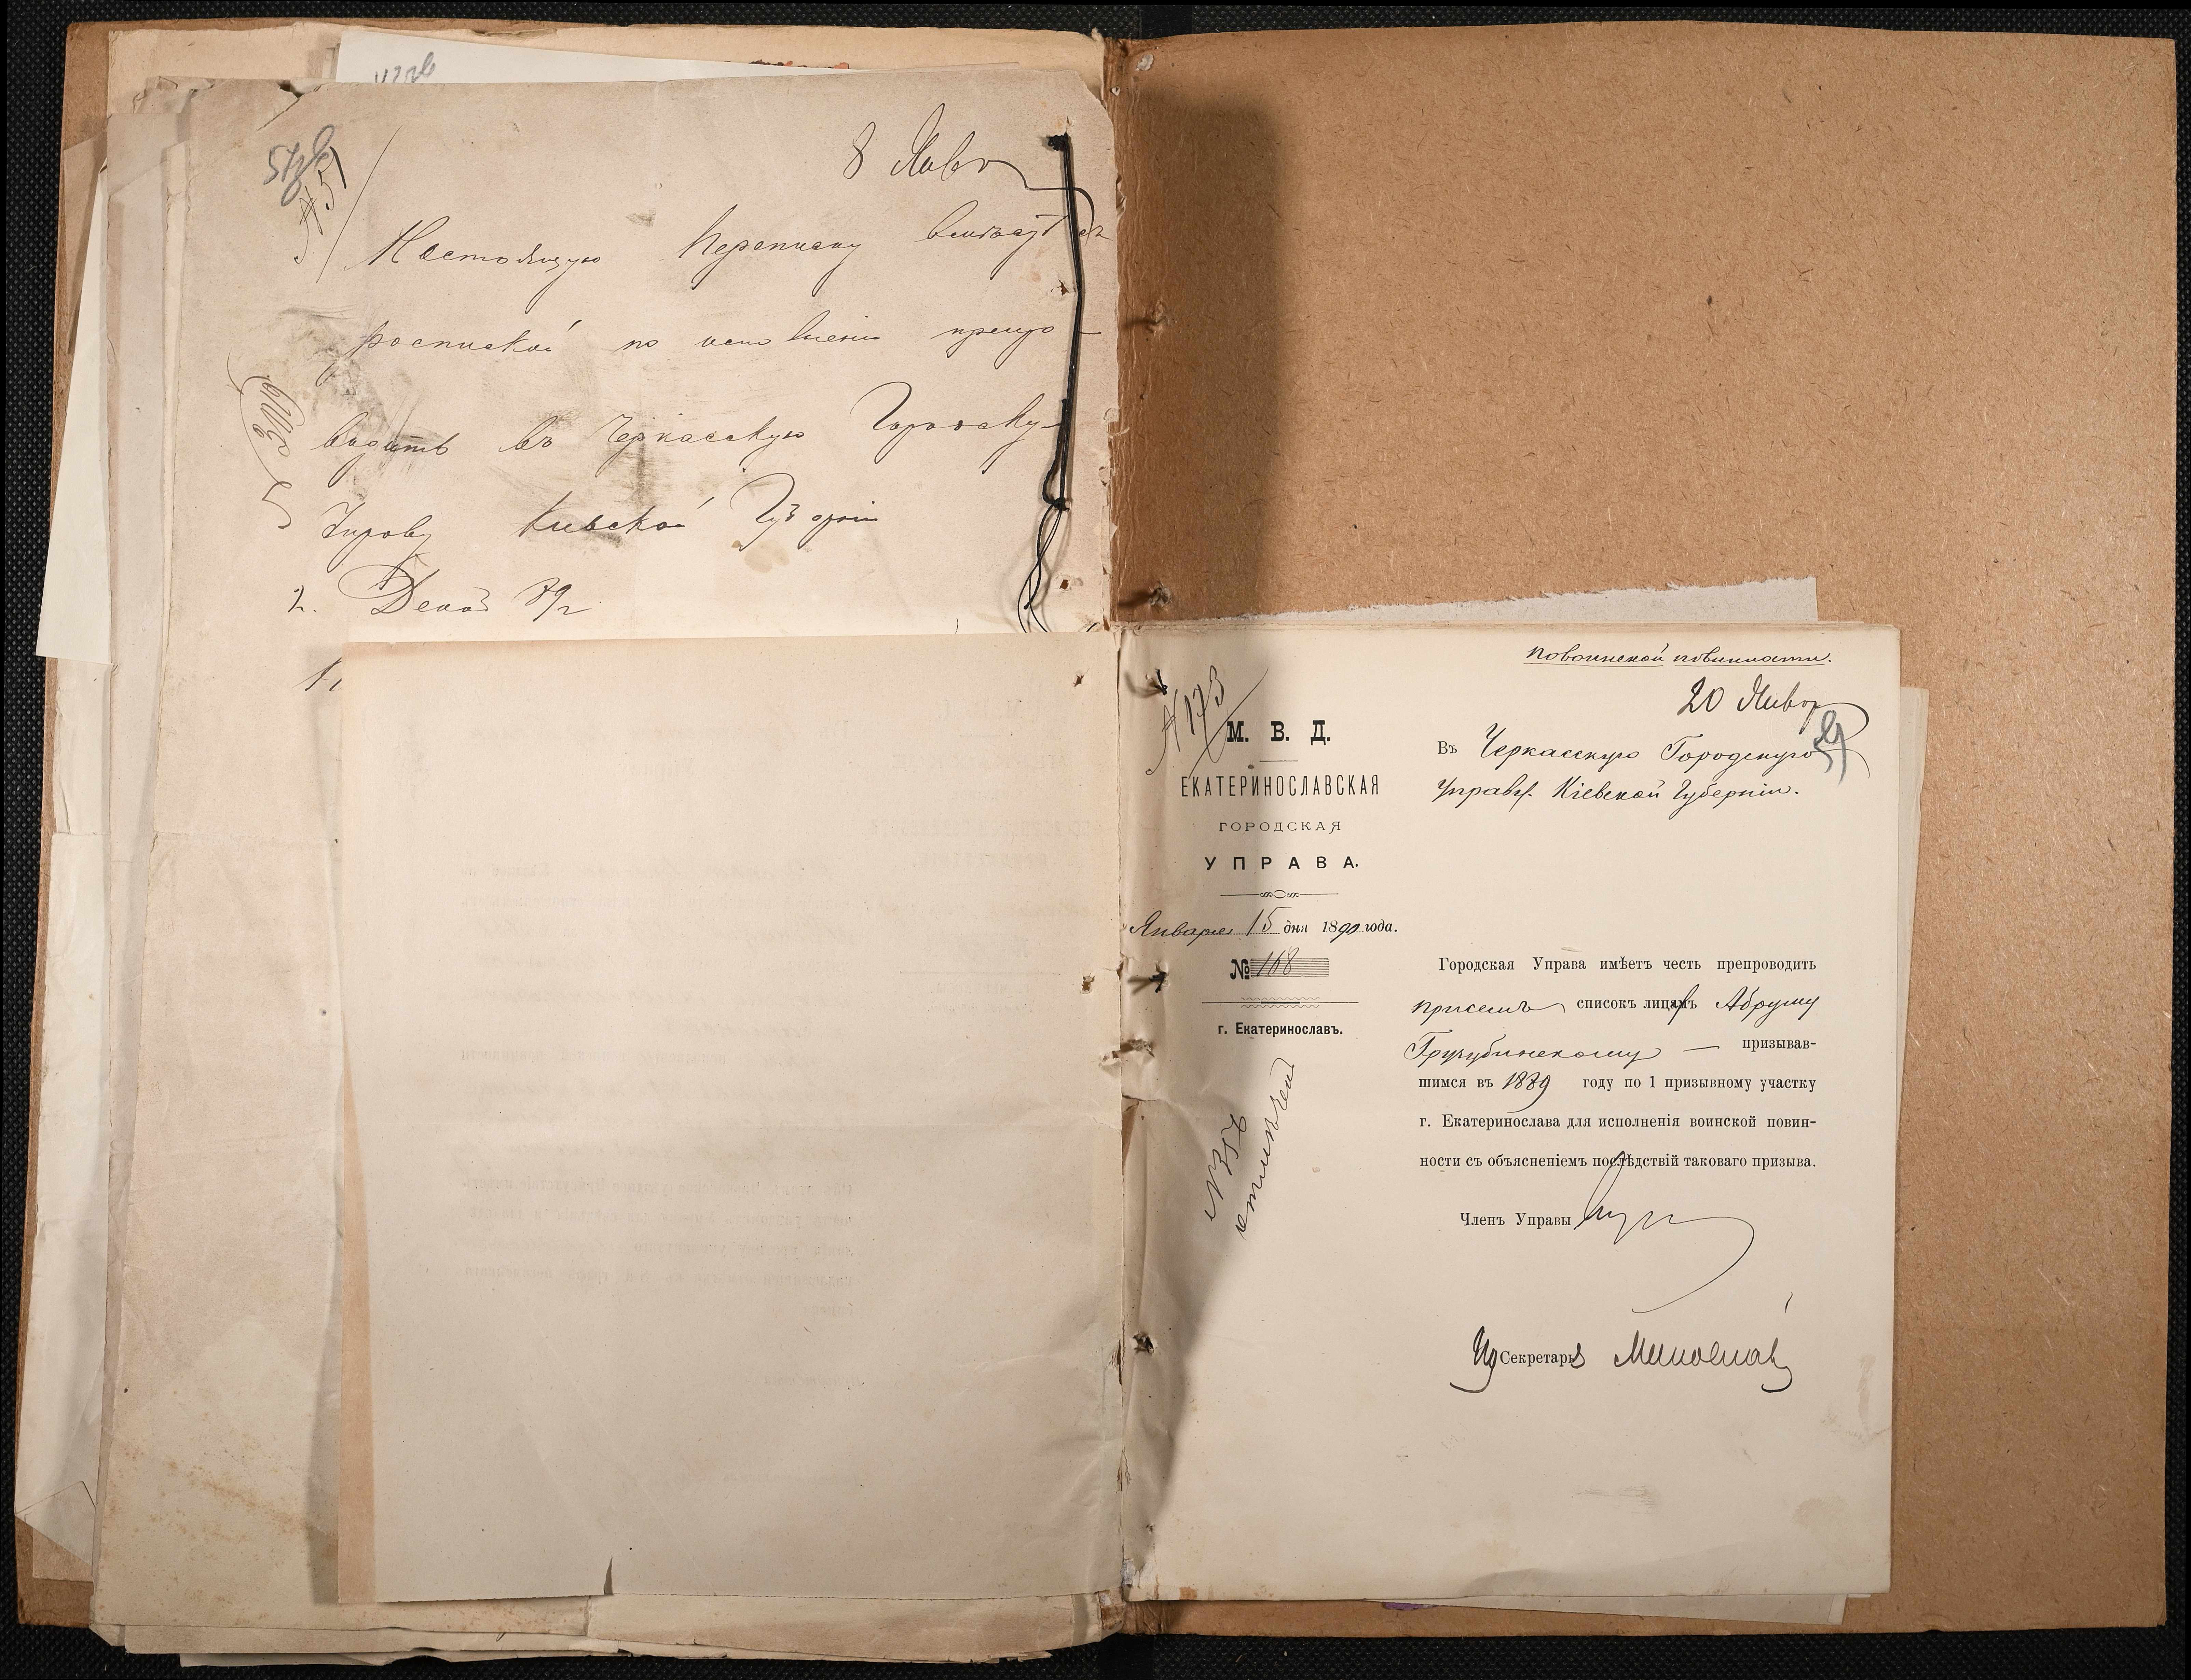 8 Янв
Настоящую переписку вмѣстѣ съ
роспиской по исполненіи препро-
водить въ Черкасскую Городску-
Управу Кіевской Губерніи
2. Декаб 89 г
по воинской повинности.
№ 173
20 Январ
М. В. Д.
ЕКАТЕРИНОСЛАВСКАЯ
ГОРОДСКАЯ
УПРАВА.
Января 15 дня 1890 года.
№ 168
г. Екатеринославъ.
Въ Черкасскую Городскую
Управу. Кіевской Губерніи.
Городская Управа имѣетъ честь препроводить
при семъ список лицамъ Абруму
призывав-
шимся въ 1889 году по 1 призывному участку
г. Екатеринослава для исполненія воинской повин-
ности съ объясненіемъ послѣдствій таковаго призыва.
Членъ Управы
Ид Секретаря